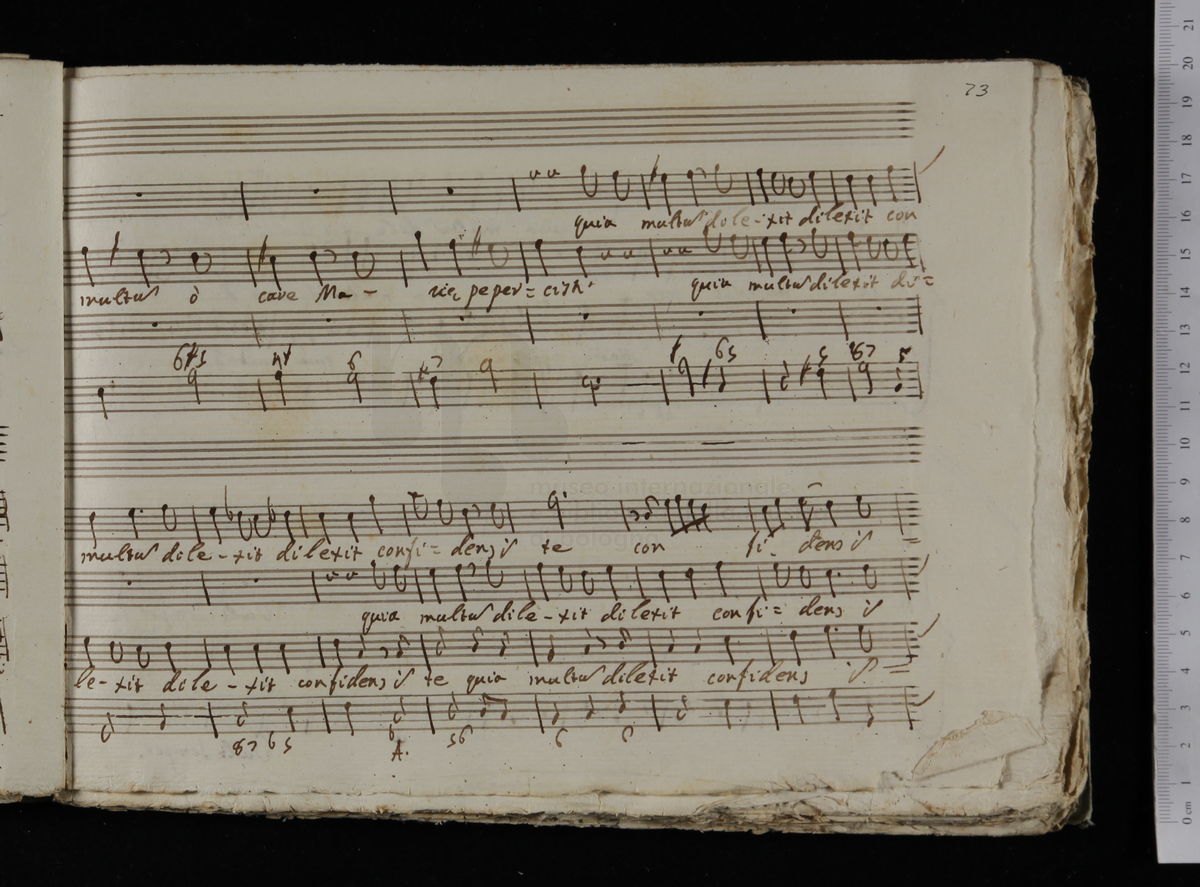 73
quia multu dile-xit dilexit con
multu ò care Ma-
quia multu dilexit di=
6 5
6
6 5
5
8 7
5
multu dile-xit dilexit confi=densi te con fi- densi
quia multu dile-xit dilexit confi=densi
le-xit dile-xit confidensi te quia multu dilexit confidensi
8 7 6 5
6
A.
5 6
6
6
museo internazionale
di bologna
0 cm 1 2 3 4 5 6 7 8 9 10 11 12 13 14 15 16 17 18 19 20 21